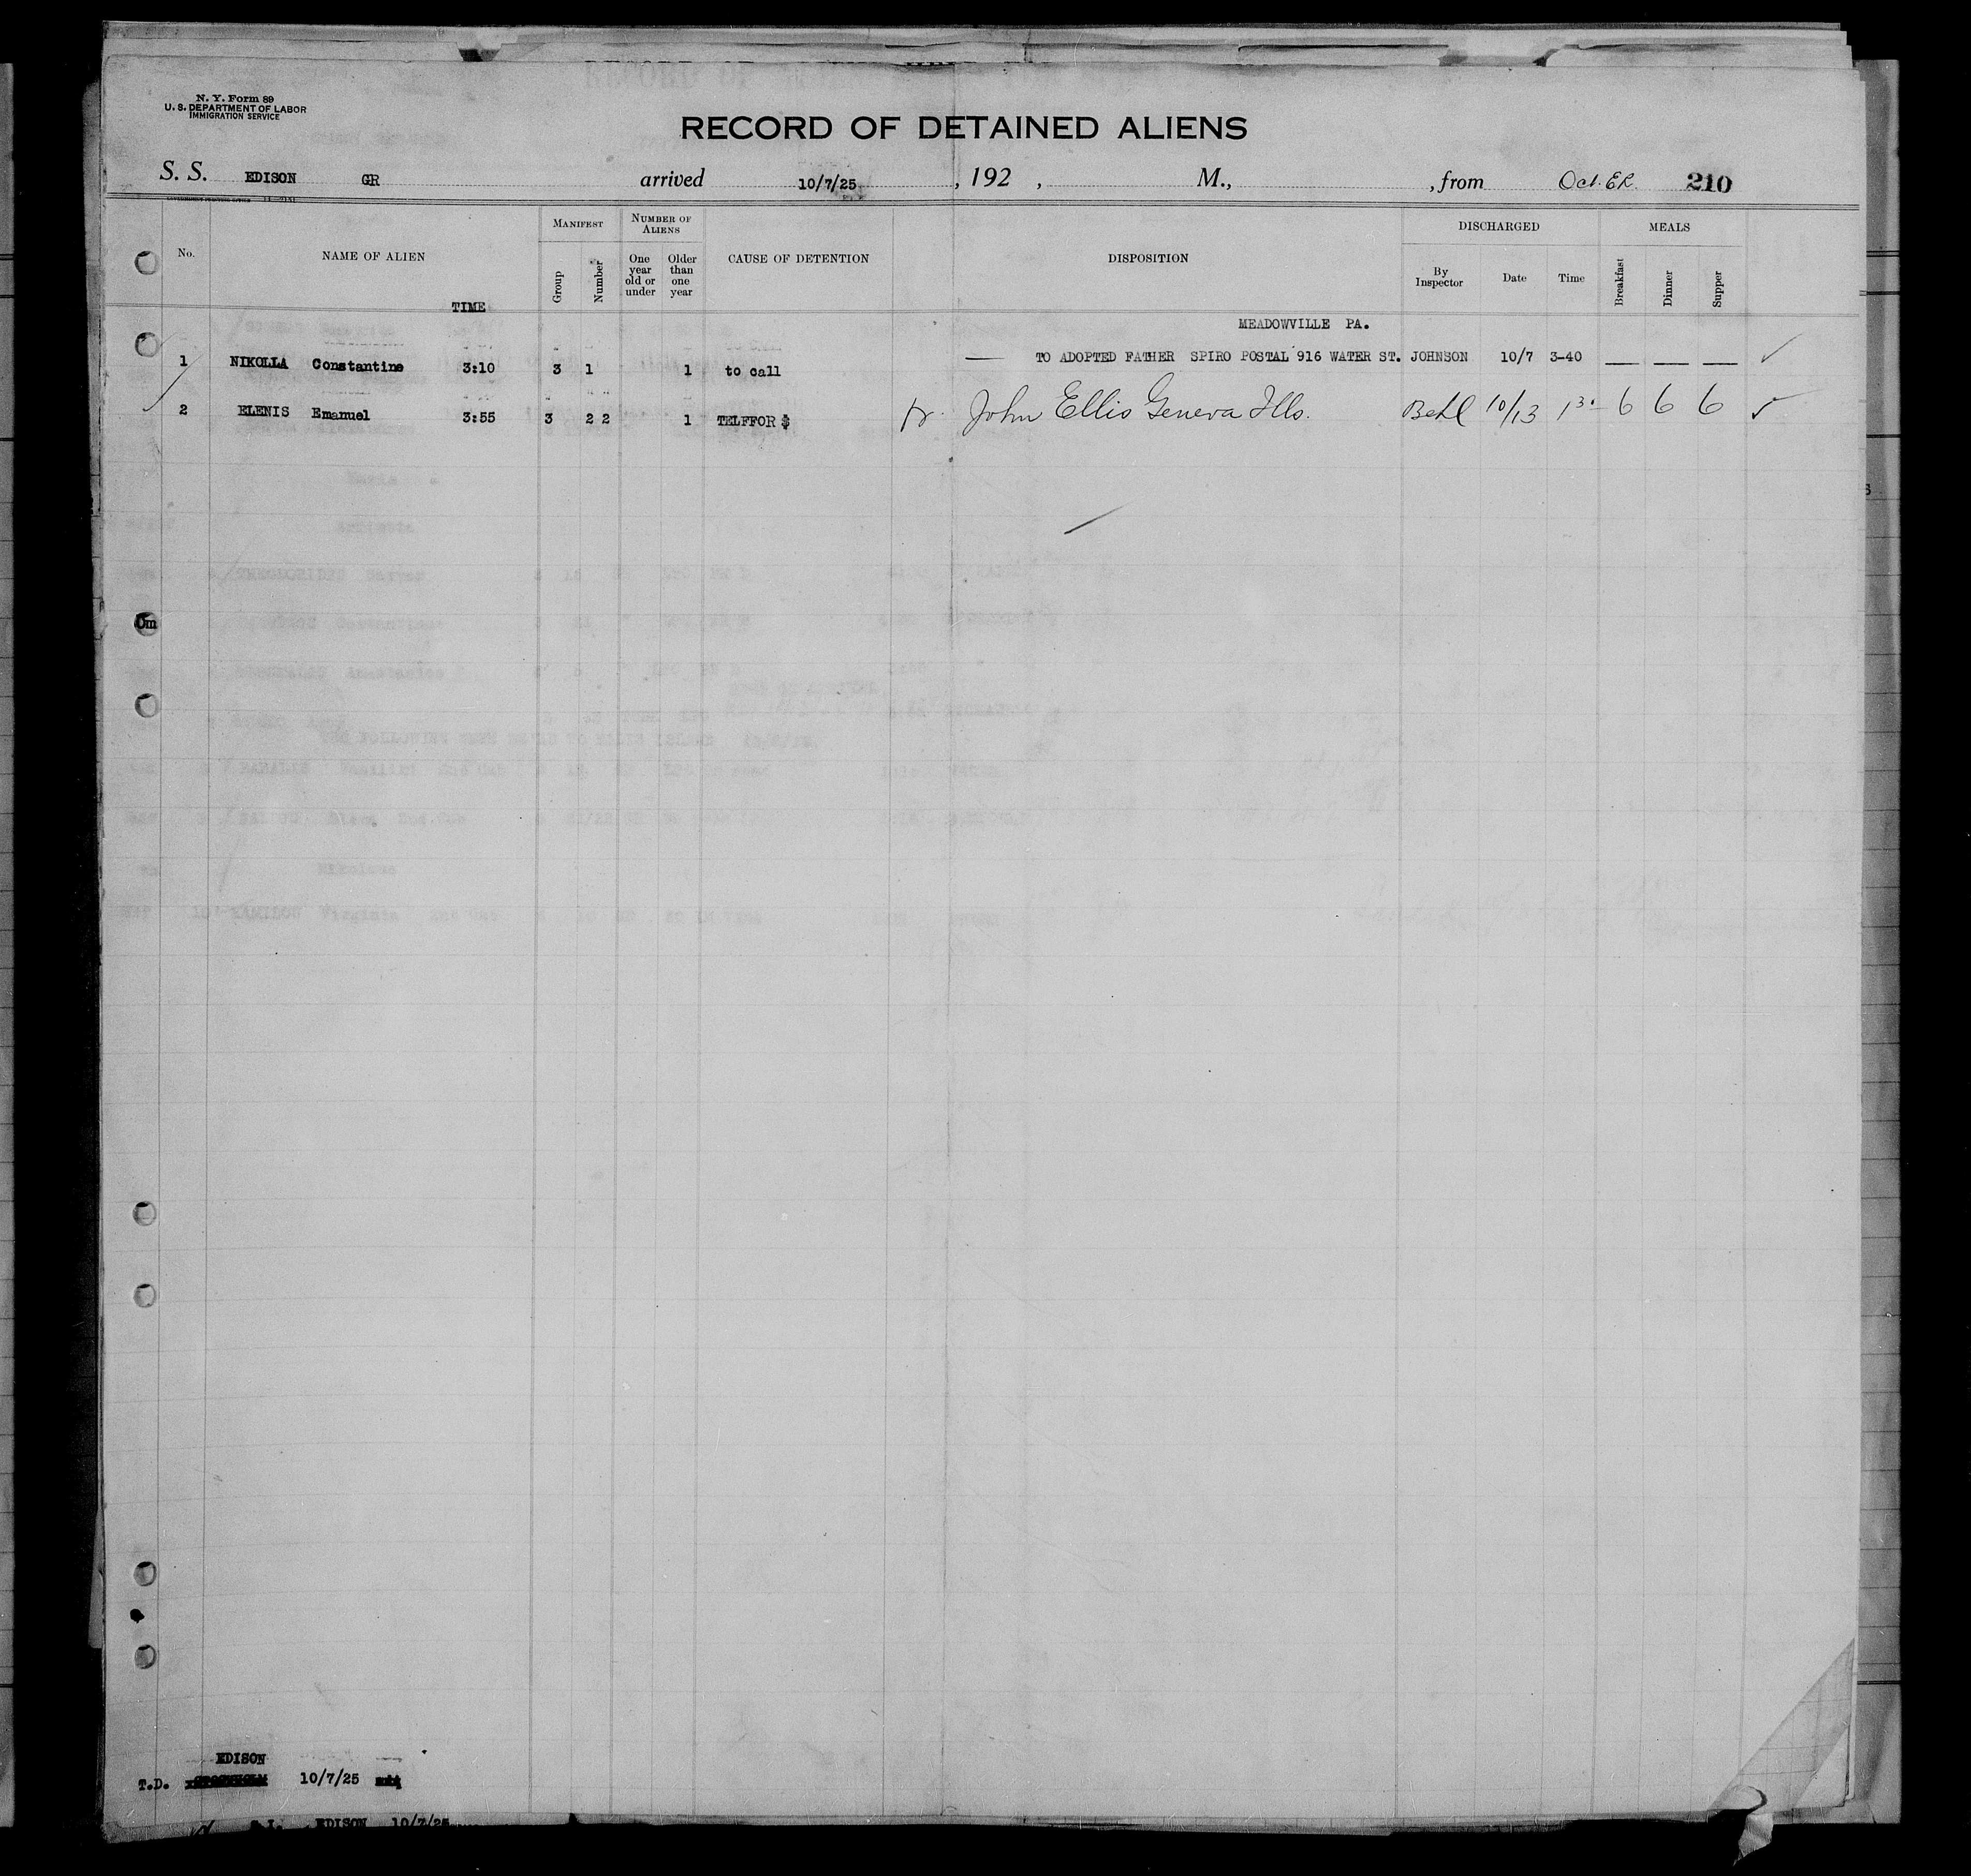 N. Y. Form 89
U. S. DEPARTMENT OF LABOR
IMMIGRATION SERVICE
RECORD OF DETAINED ALIENS
S. S. EDISON GR arrived 10/7/25, 192 , M., , from Oct. ER. 210
MANIFEST NUMBER OF ALIENS DISCHARGED MEALS
No. NAME OF ALIEN TIME Group Number One year old or under Older than one year CAUSE OF DETENTION DISPOSITION By Inspector Date Time Breakfast Dinner Supper
MEADOWVILLE PA.
1 NIKOLLA Constantine 3:10 3 1 1 to call — TO ADOPTED FATHER SPIRO POSTAL 916 WATER ST. JOHNSON 10/7 3-40 — — — ✓
2 ELENIS Emanuel 3:55 3 22 1 TELFFOR $ John Ellis Geneva Ills. 10/13 1 30 6 6 6 ✓
Om
EDISON
T.D. 10/7/25
EDISON 10/7/25